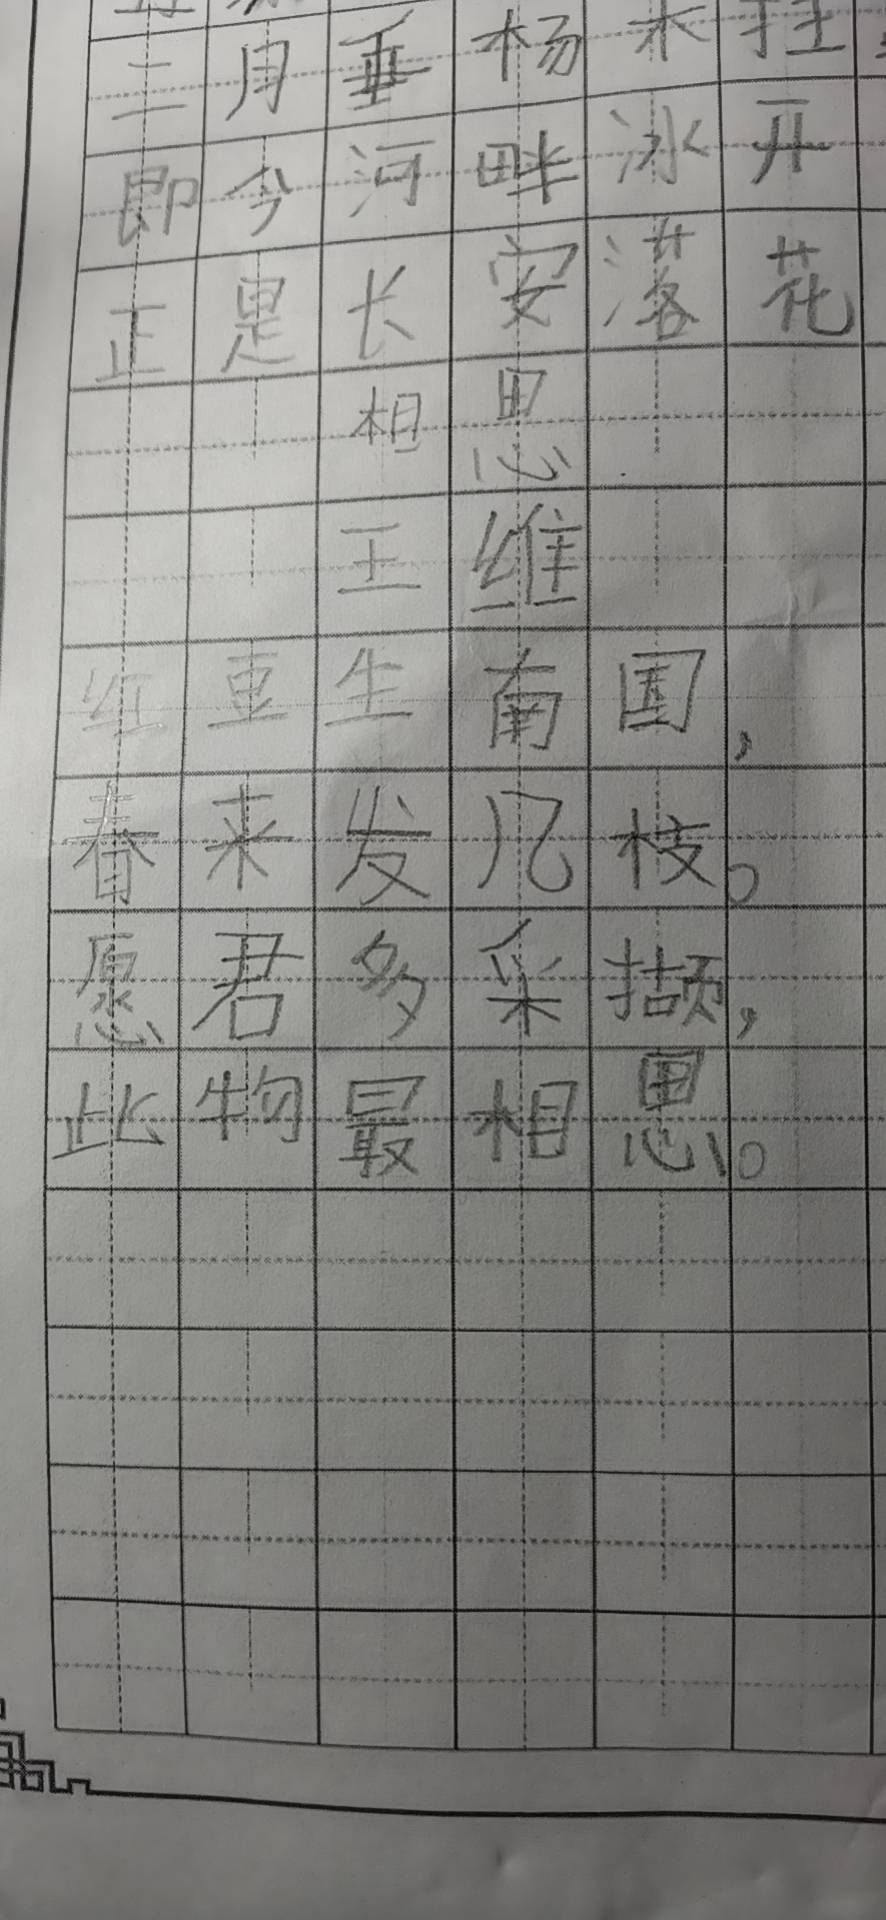 三月垂杨未挂
即今河畔冰开
正是长安落花
相思
王维
红豆生南国，
春来发几枝。
愿君多采撷，
此物最相思。